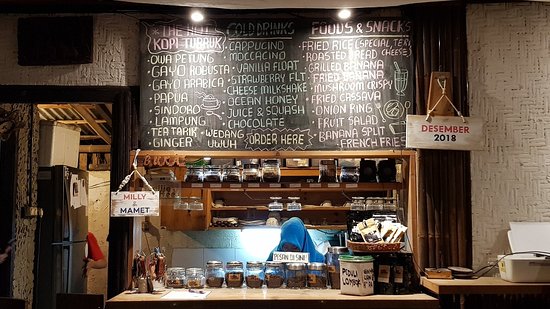 THE HOT
KOPI TUBRUK
OWA PETUNG
GAYO ROBUSTA
GAYO ARABICA
PAPUA
SINDORO
LAMPUNG
TEA TARIK
GINGER
WEDANG
UWUH
COLD DRINKS
CAPPUCINO
MOCCACINO
VANILLA FLOAT
STRAWBERRY FLT
CHEESE MILKSHAKE
OCEAN HONEY
JUICE & SQUASH
CHOCOLATE
ORDER HERE
FOODS & SNACKS
FRIED RICE (SPECIAL, TERI)
ROASTED BREAD CHEESE)
GRILLED BANANA
FRIED BANANA
MUSHROOM CRISPY
FRIED CASSAVA
ONION RING
FRUIT SALAD
BANANA SPLIT
FRENCH FRIES
DESEMBER
2018
BUKA
MILLY
&
MAMET
PESAN DI SINI
PEDULI
LOMBOK